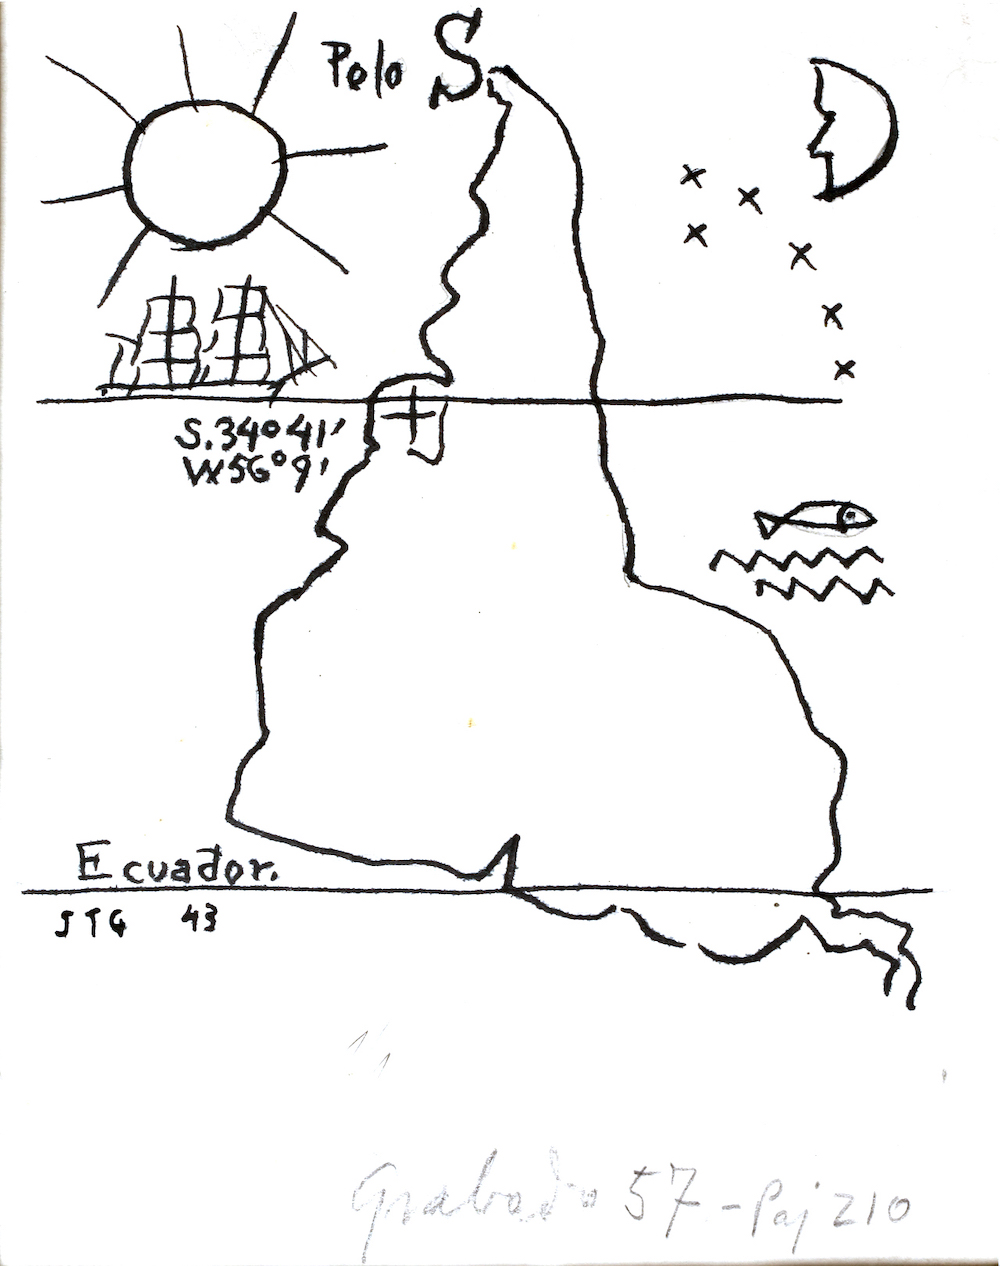 Polo S
S. 34° 41'
W 56° 9'
Ecuador.
JTG 43
Grabado 57 - Paj 210